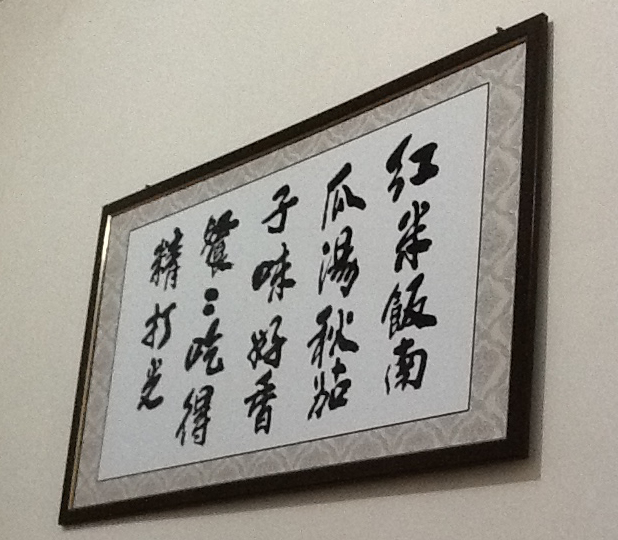 红米飯南
瓜湯秋茄
子味好香
餐〻吃得
精打光